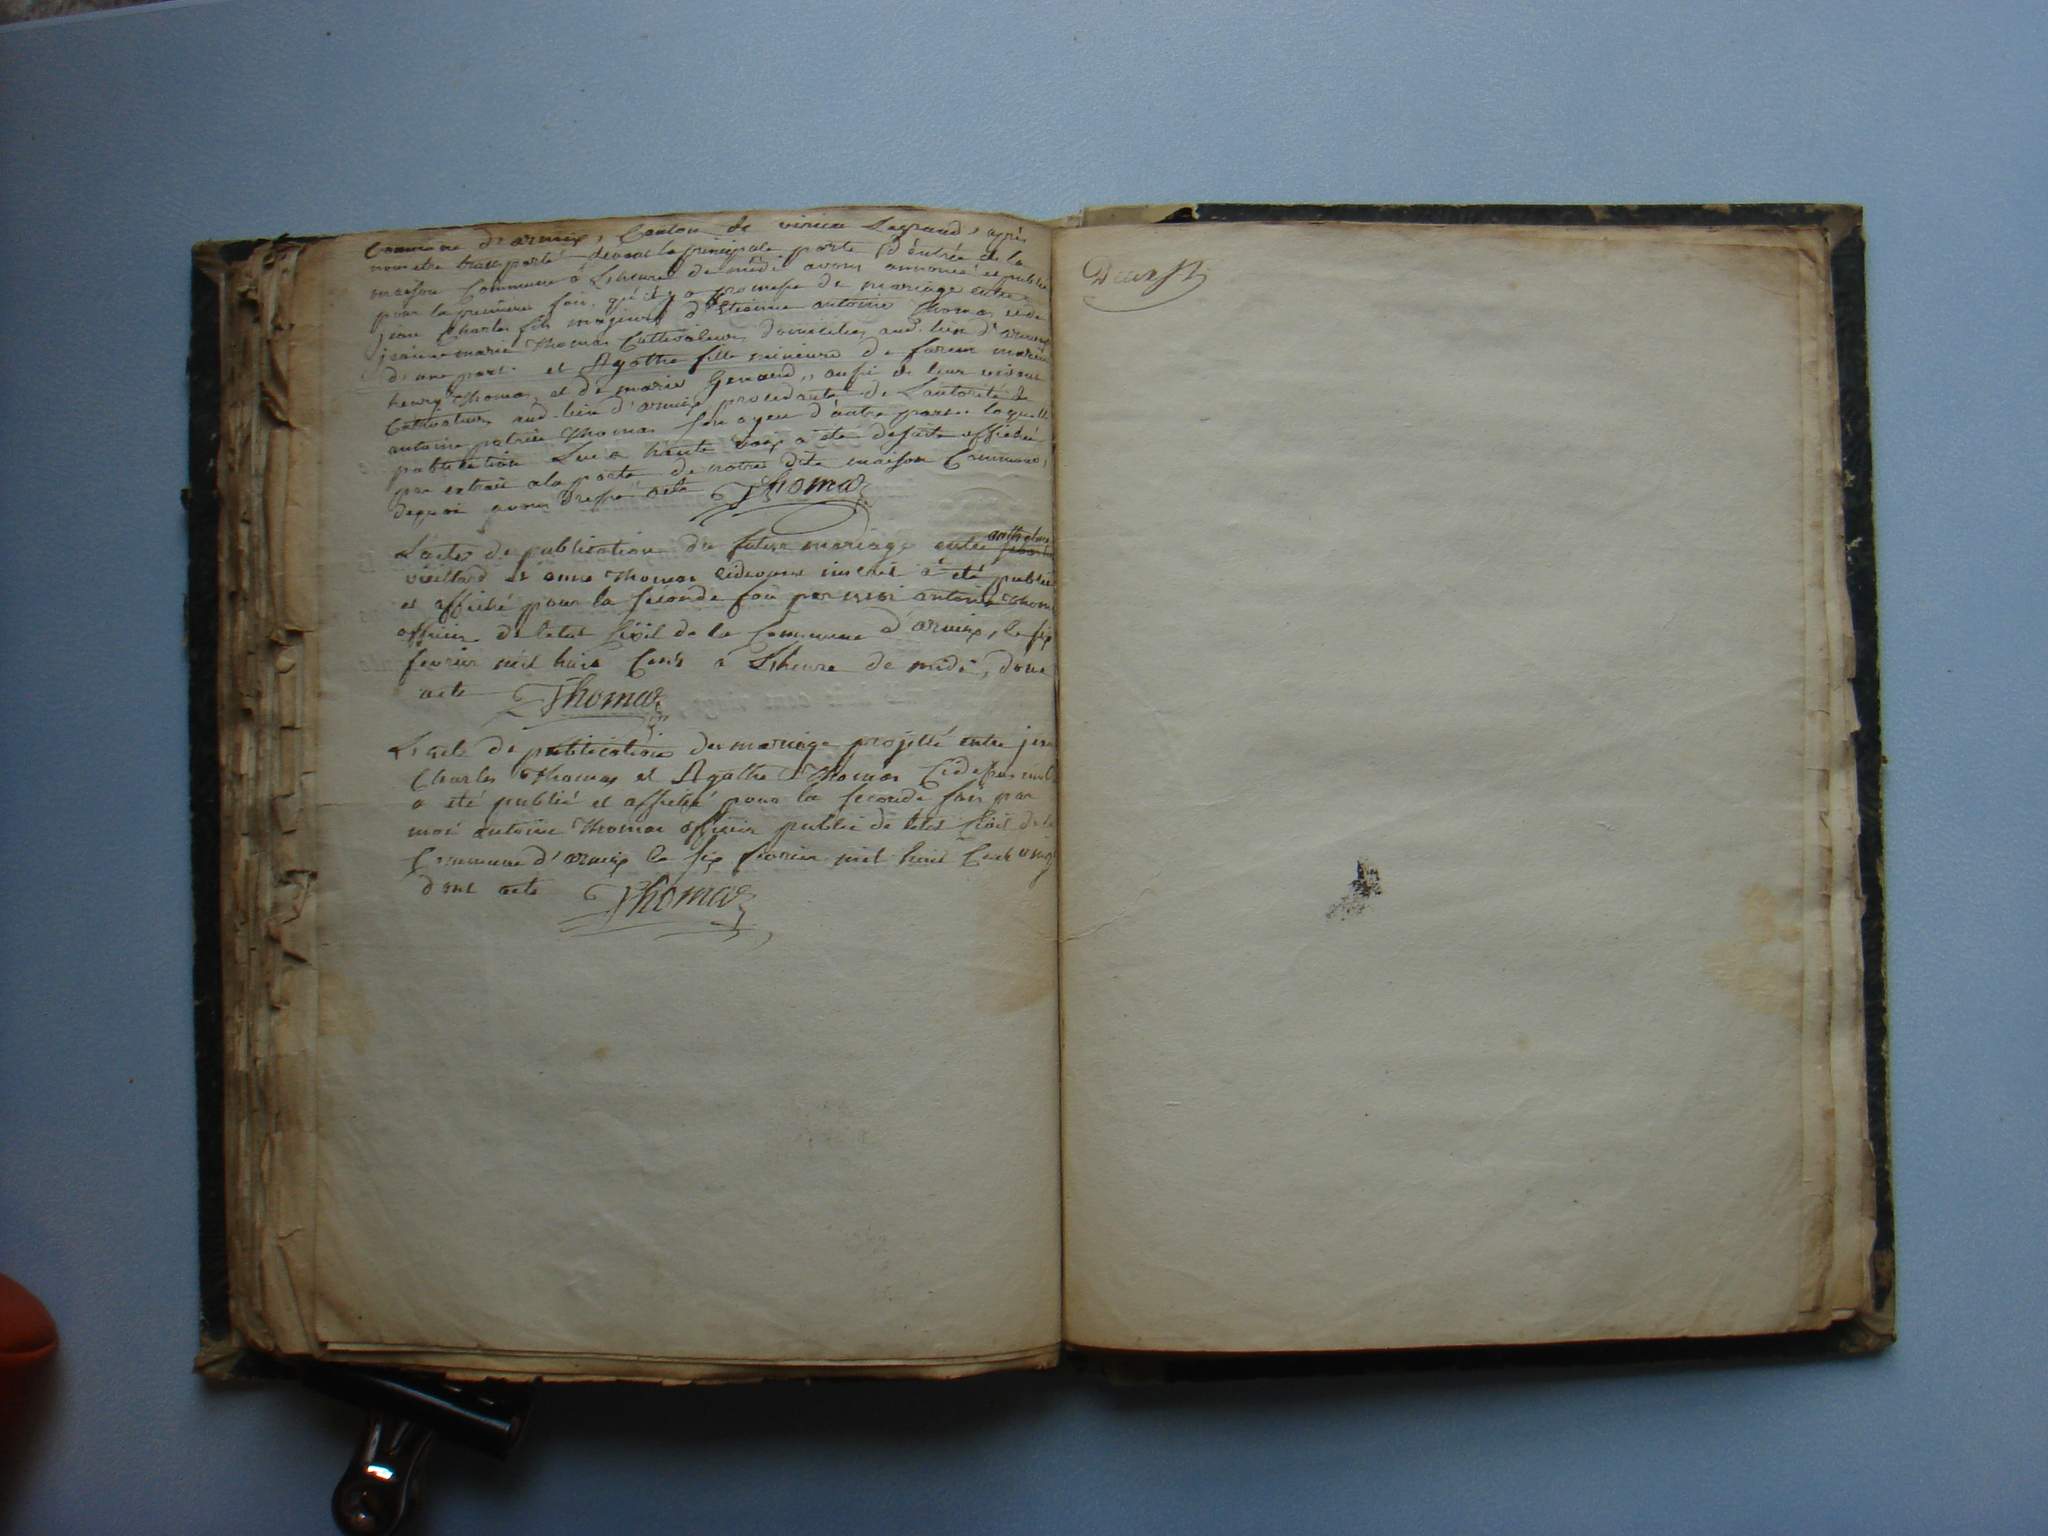 Commune d'armix, Canton de virieu Legrand, après
nous etre transporté devant la principale porte d'entrée de la
maison Commune à L'heure de midi avons annoncé et publié
pour la premiere fois qu'il y a promesse de mariage entre
jean Charles fils majeur d'Etienne antoine Thomas et de
jeanne marie Thomas Cultivateurs domiciliés aud. lieu d'armix
d'une part. et Agathe fille mineure de
henry Thomas, et de marie Genaud, aussi de leur vivant
Cultivateurs aud. lieu d'armix procedante de L'autorité de
antoine patrice Thomas son ayeu d'autre part. laquelle
publication Lue a haute voix a été de suite affichée
par extrait a la porte de notre dite maison Commune,
dequoi avons dressé acte Thomas
L'acte de publication du futur mariage entre
vieillard et anne Thomas cidevant inscrit a été publié
et affiché pour la seconde fois par moi antoine Thomas
officier de l'etat Civil de la Commune d'armix, le six
fevrier mil huit Cent a L'heure de midi, dont
acte Thomas
L'acte de publication du mariage projetté entre jean
Charles Thomas et Agathe Thomas Cidessus
a été publié et affiché pour la seconde fois par
moi antoine Thomas officier public de letat Civil de la
Commune d'armix le six fevrier mil huit Cent
dont acte Thomas